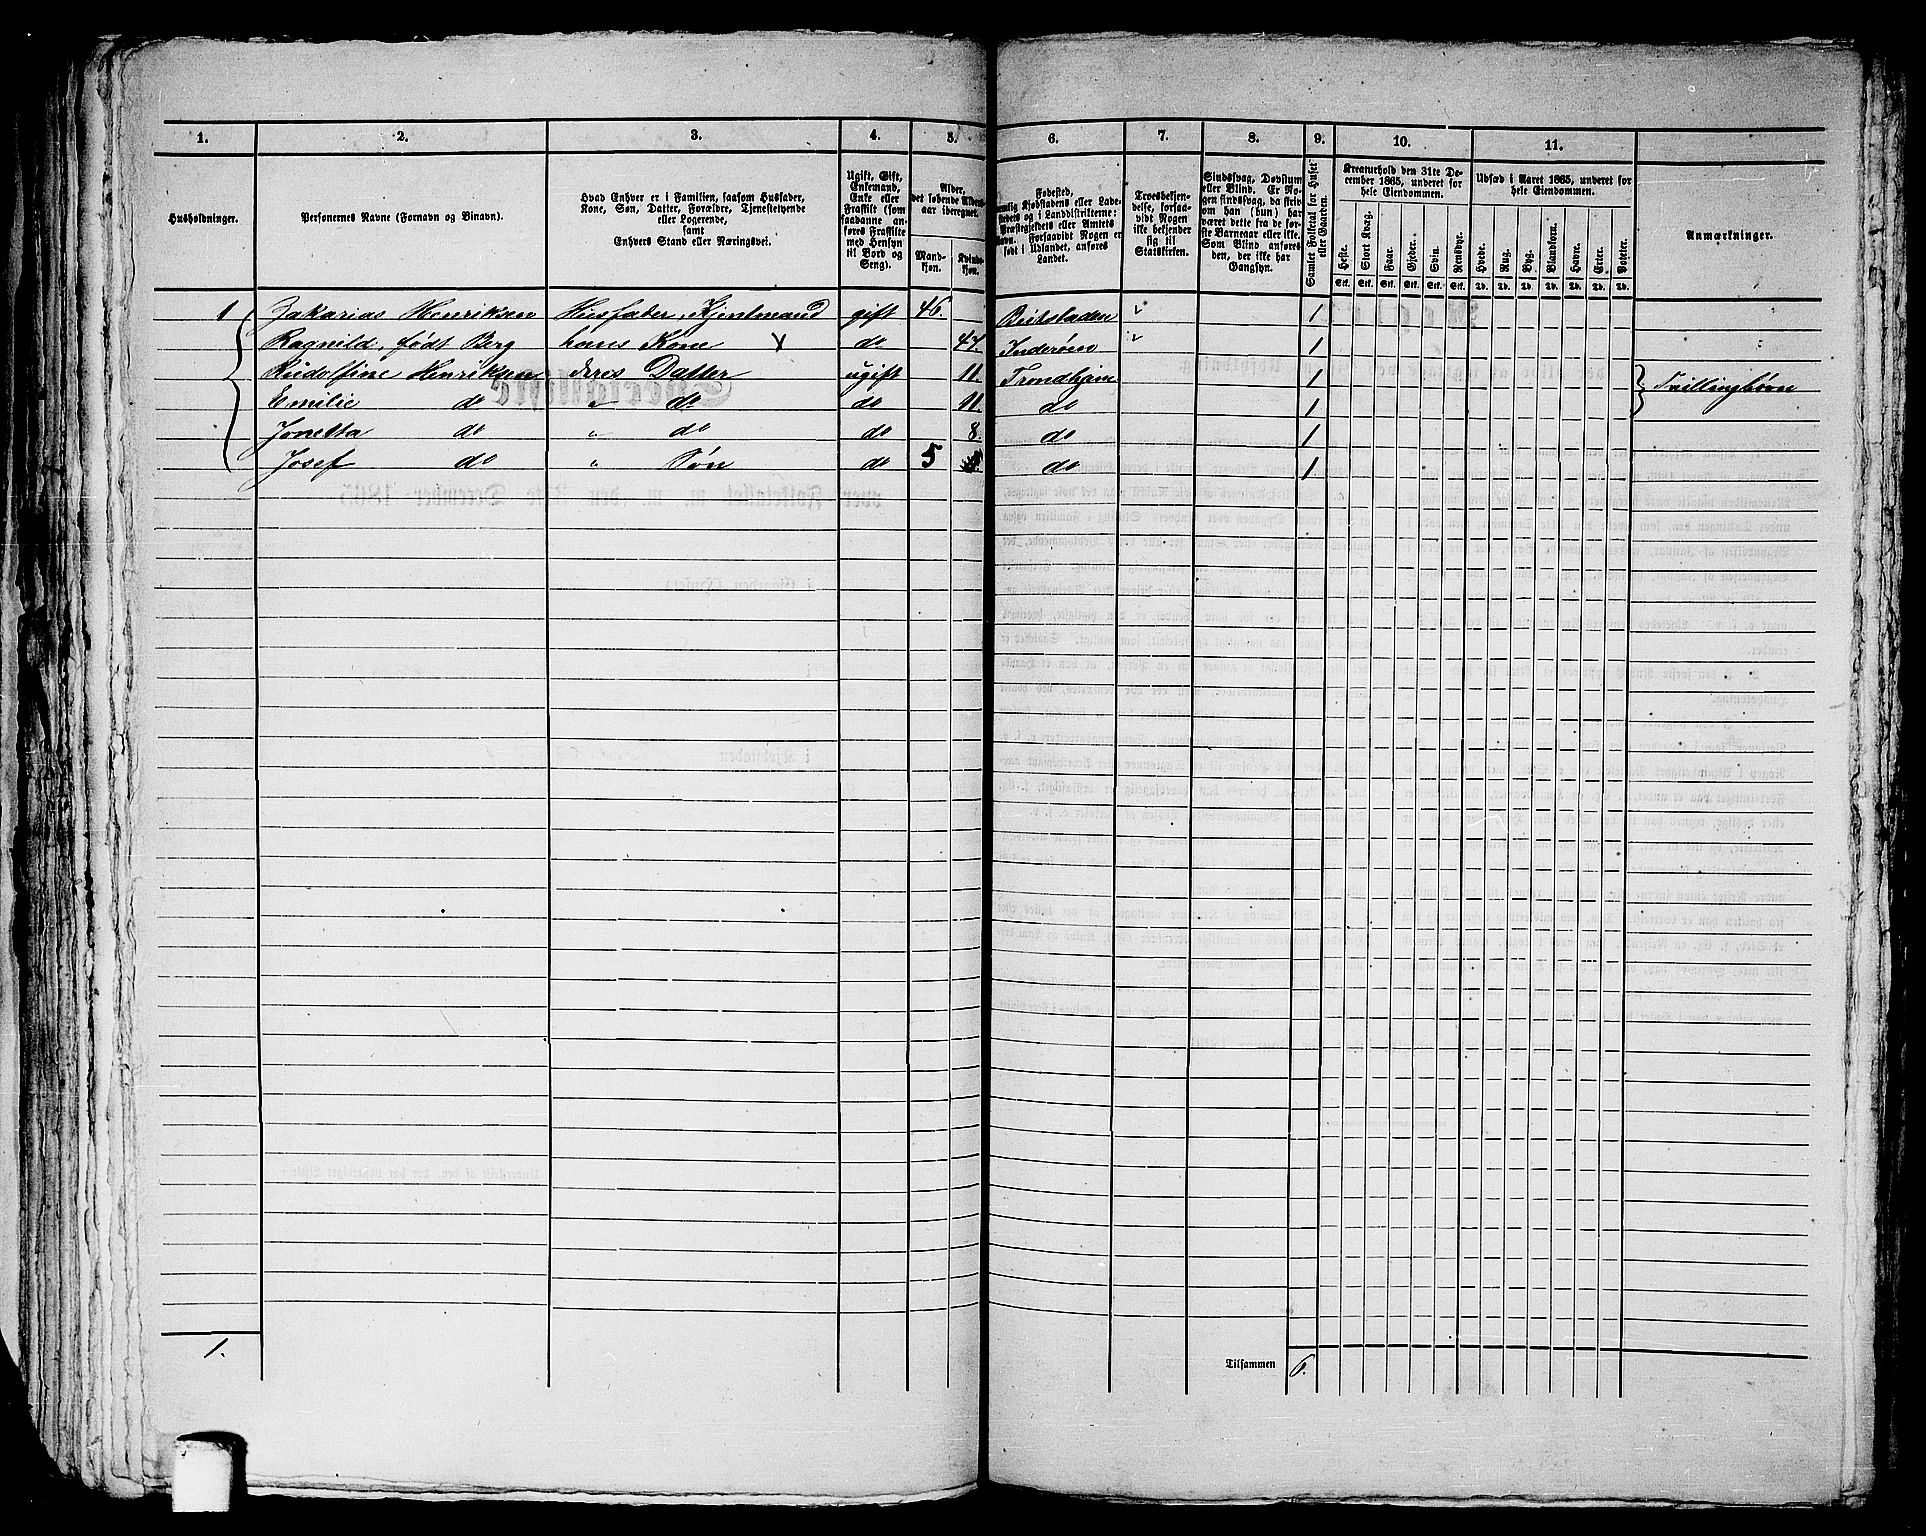 1. 2. 3. 4. 5. 6. 7. 8. 9. 10. 11.
Husholdninger.
Personernes Navne (Fornavn og Binavn).
Hvad Enhver er i Familien, saasom Husfader,
Kone, Søn, Datter, Forældre, Tjenestetyende
eller Logerende,
samt
Enhvers Stand eller Næringsvei.
Ugift, Gift,
Enkemand,
Enke eller
Fraskilt (som
saadanne an-
føres Fraskilte
med Hensyn
til Bord og
Seng).
Alder,
det løbende Alders-
aar iberegnet.
Mand-
kjøn.
Kvinde-
kjøn.
Fødested,
nemlig Kjøbstadens eller Lade-
stedets og i Landdistrikterne:
Præstegjeldets eller Amtets
Navn. Forsaavidt Nogen er
født i Udlandet, anføres
Landet.
Troesbekjen-
delse, forsaa-
vidt Nogen
ikke bekjender
sig til
Statskirken.
Sindssvag, Døvstum
eller Blind. Er No-
gen sindssvag, da skriv
om han (hun) har
været dette fra de før-
ste Barneaar eller ikke.
Som Blind anføres
den, der ikke har
Gangsyn.
Samlet Folketal for Huset
eller Gaarden.
Kreaturhold den 31te De-
cember 1865, underet for
hele Eiendommen.
Heste. Stort Kvæg. Faar. Gjeder. Svin. Rensdyr.
Stk. Stk. Stk. Stk. Stk. Stk.
Udsæd i Aaret 1865, underet for
hele Eiendommen.
Hvede. Rug. Byg. Blandkorn. Havre. Erter. Poteter.
Td. Td. Td. Td. Td. Td. Td.
Anmærkninger.
1 Zakarias Henriksen Husfader, Kjentmand gift 46. Beitstaden " 1
Ragnild, født Berg hans Kone do 47. Inderøen " 1
Rudolfine Henriksen deres Datter ugift 11. Trondhjem 1 Tvillingbørn
Emilie do " do do 11. do 1
Jonetta do " do do 8. do 1
Josef do " Søn do 5 do 1
1.
Tilsammen 6.